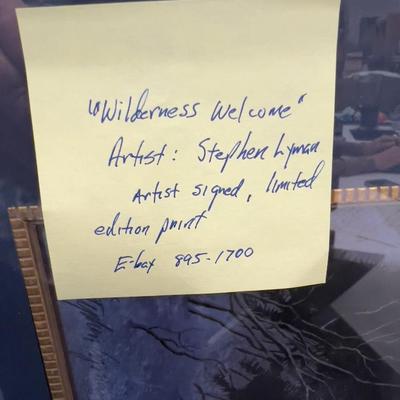 "Wilderness Welcome"
Artist: Stephen Lyman
Artist signed, limited
edition print
E-bay 895-1700